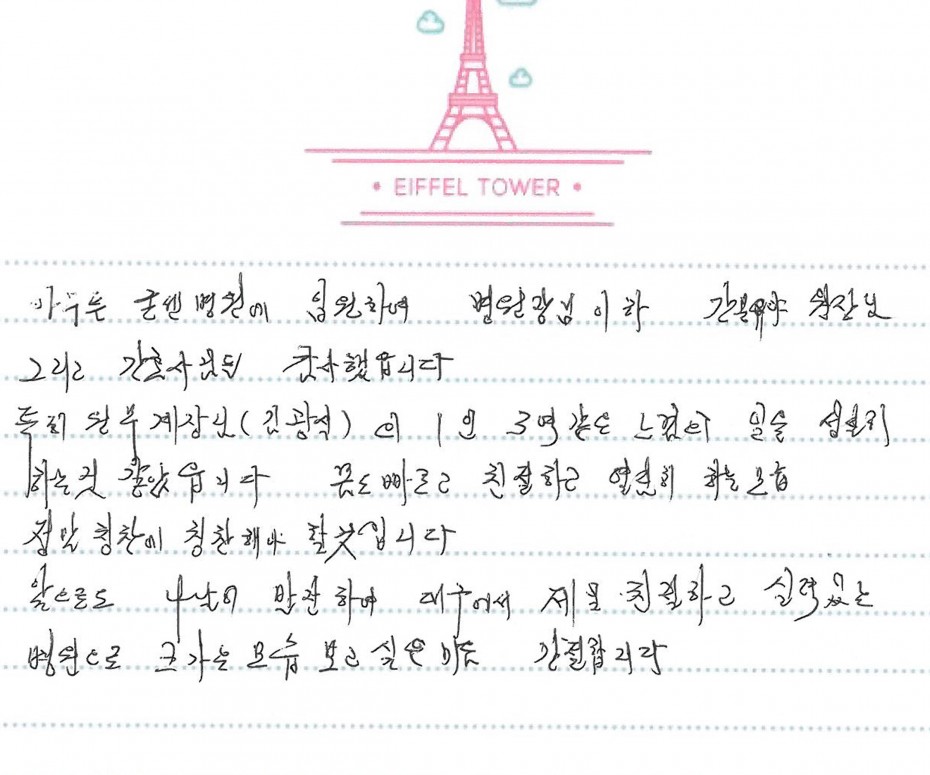 EIFFEL TOWER
아무튼 굿센병원에 입원하여 병원장님 이하 간호 원장님
그리고 간호사님들 감사했습니다
특히 원무계장님(김광석)의 1인 3역 같은 느낌의 일을 섭렵리
하는것 같았습니다 몸도 빠르고 친절하고 열심히 하는모습
정말 칭찬이 칭찬해야 할것입니다
앞으로도 나날이 발전하여 대구에서 제일 친절하고 실력있는
병원으로 커가는 모습 보고싶은 마음 간절합니다